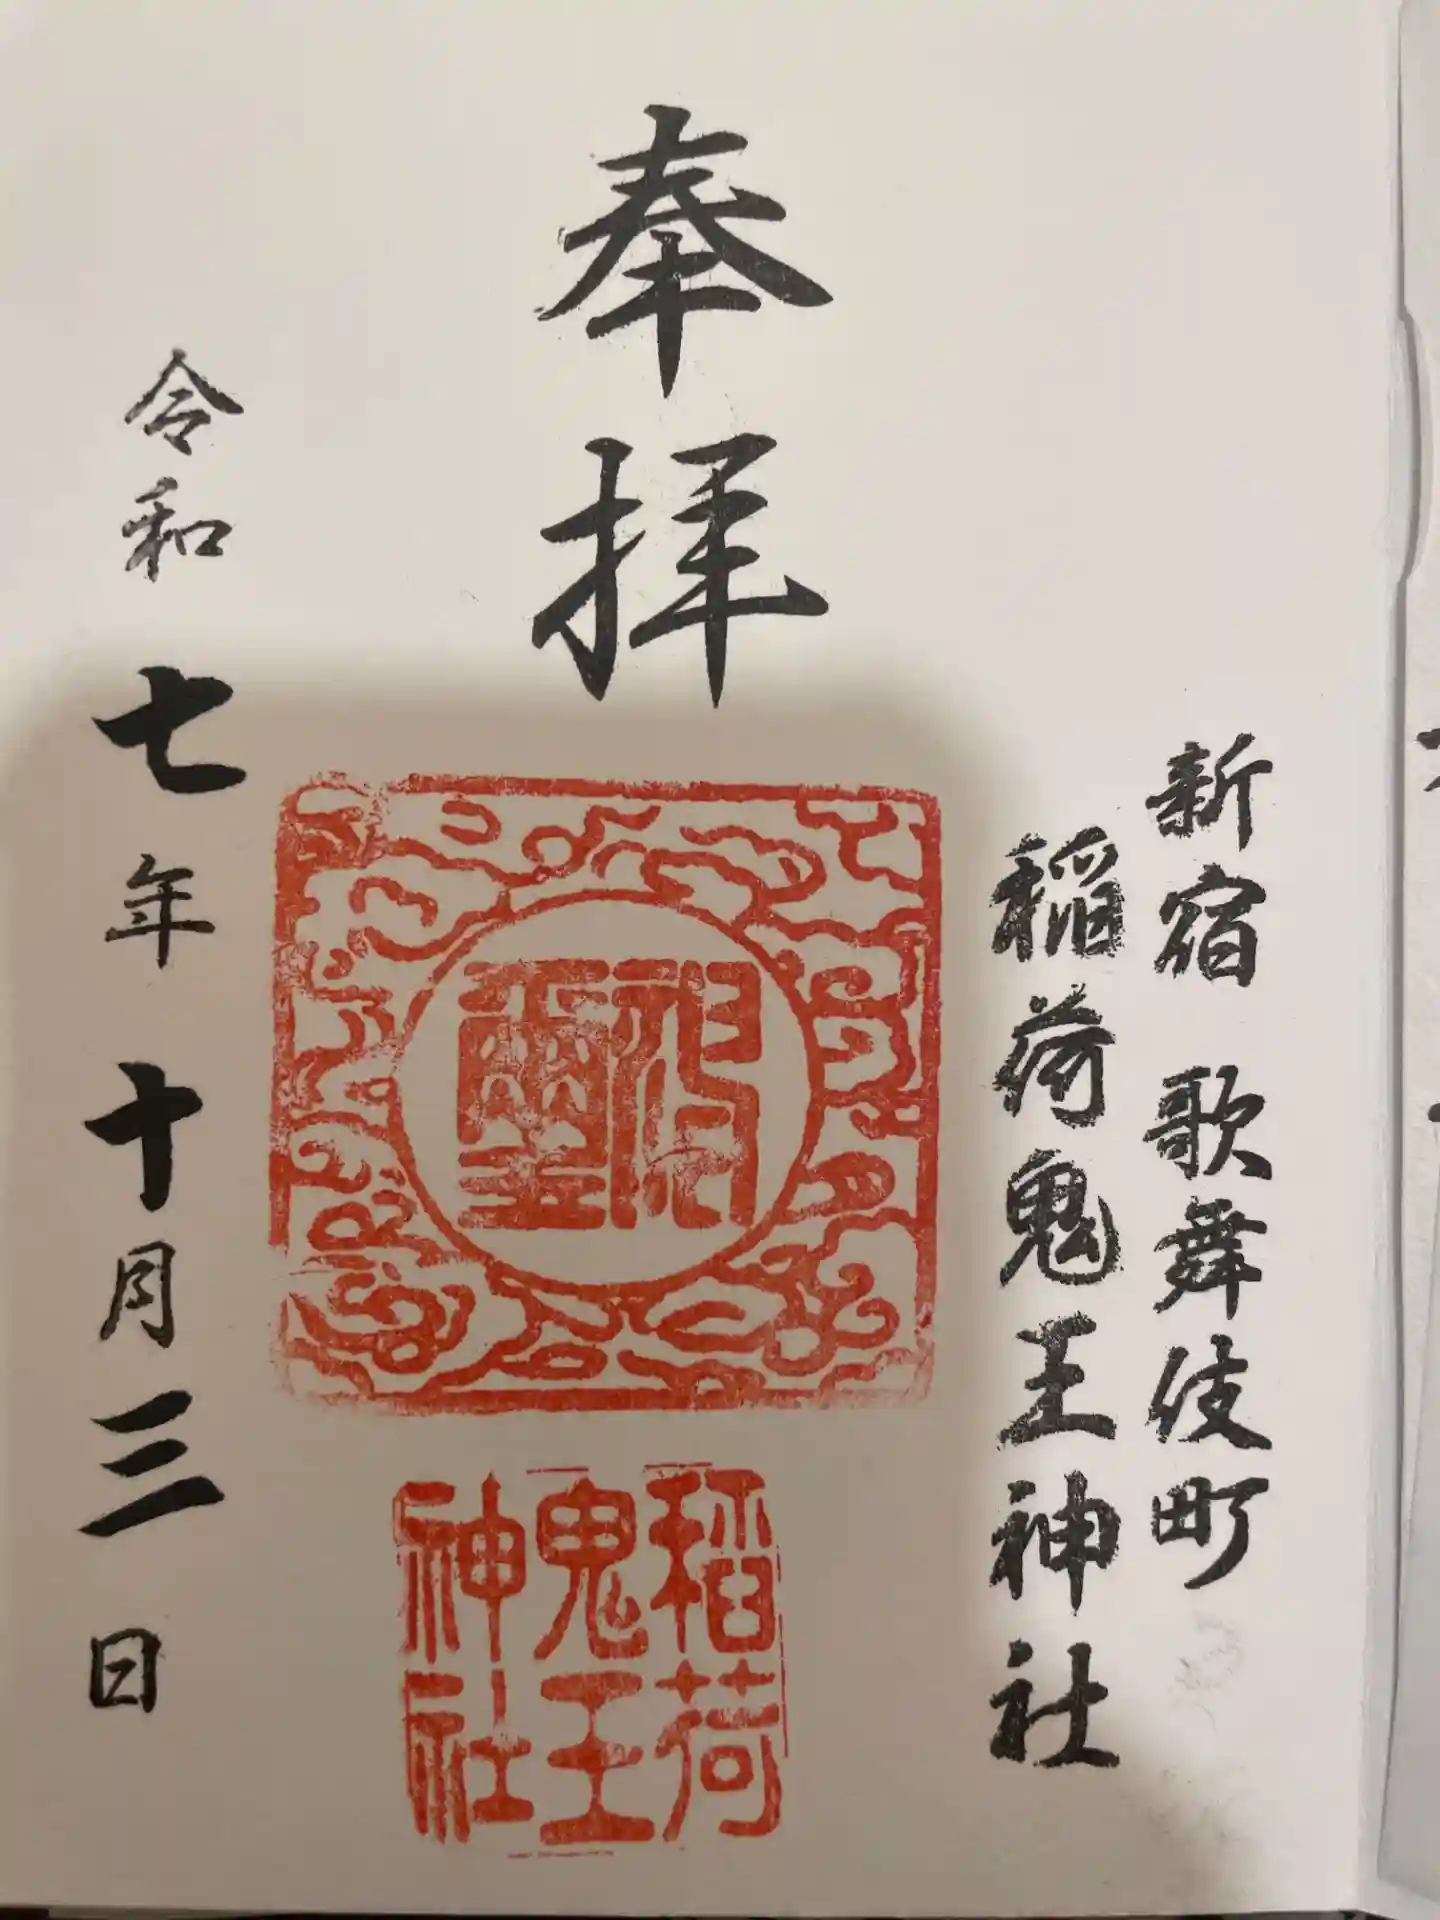 新宿 歌舞伎町
稲荷鬼王神社
奉拝
神璽
稲荷
鬼王
神社
令和七年十月三日